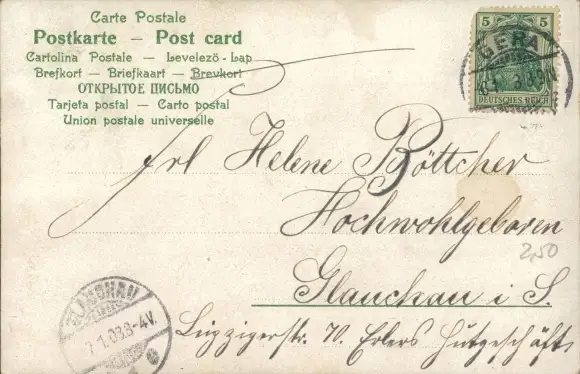 Carte Postale
Postkarte – Post card
Cartolina Postale – Levelezö-Lap
Brefkort – Briefkaart – Brevkort
ОТКРЫТОЕ ПИСЬМО
Tarjeta postal – Carto postal
Union postale universelle
5 5
GERA
DEUTSCHES REICH
Frl Helene Böttcher
Hochwohlgeboren
2,50
Glauchau i S.
Leipzigerstr. 70. Erlers Hutgeschäft
GLAUCHAU
7.1.03.3-4V.